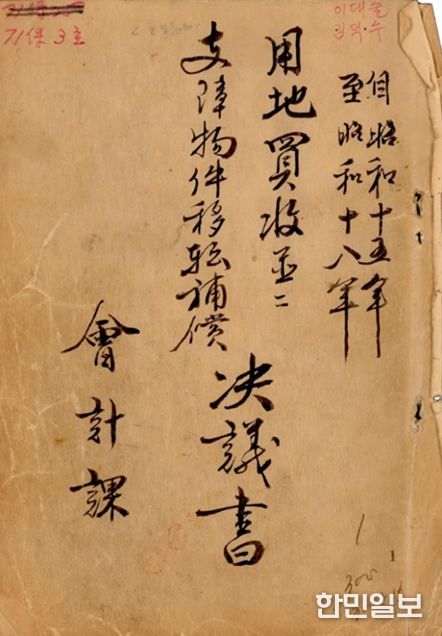 71保 3호
이대술
김덕수
自昭和十五年
至昭和十八年
用地買收並ニ
支障物件移転補償
決議書
會計課
1
1
300
한민일보